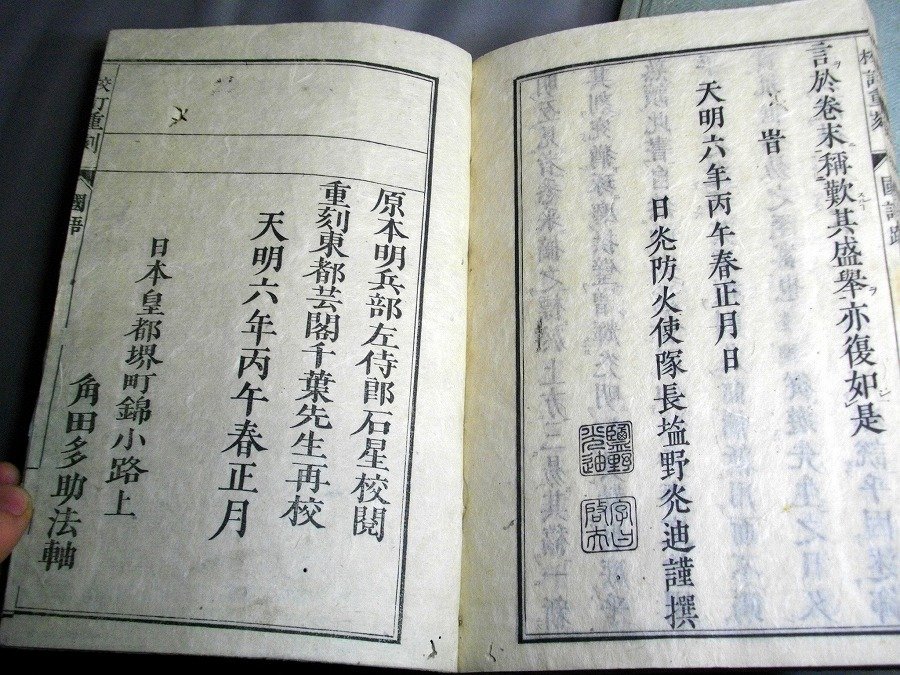 校訂重刻 國語跋
言於卷末稱歎其盛舉亦復如是
旹
天明六年丙午春正月日
日灮防火使隊長塩野灮迪謹撰
原本明兵部左侍郎石星校閲
重刻東都芸閣千葉先生再校
天明六年丙午春正月
日本皇都堺町錦小路上
角田多助法軸
校訂重刻 國語